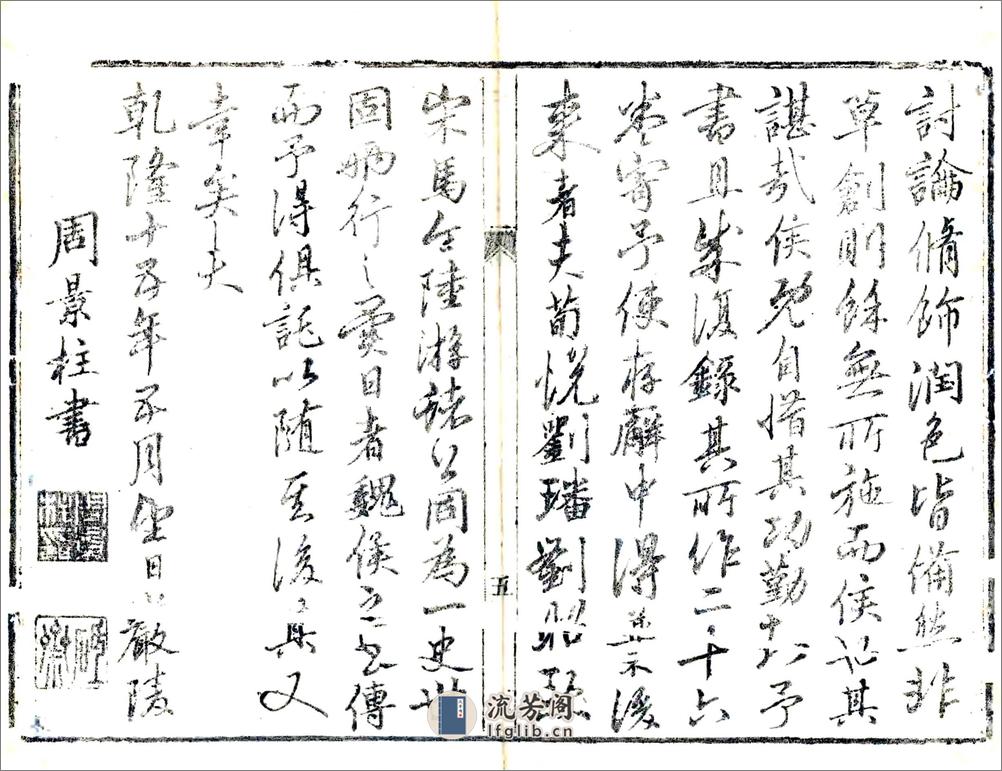 討論脩飾潤色皆備然非
草創則餘無所施而侯記其
諶哉侯既自惜其功勤十六予
書且成復錄其所作二十六
寄予使存廨中得業後
來者夫荀悅劉璠劉
宋馬令陸游諸公固為一史
固將行之異日者魏侯之書傳
而予得俱託以随其後其又
幸矣夫
乾隆十五年五月望日嚴陵
周景柱書
五
流芳阁
lfglib.cn